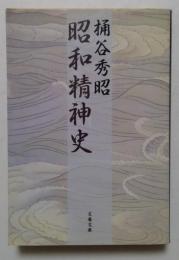 桶谷秀昭
昭和精神史
文春文庫